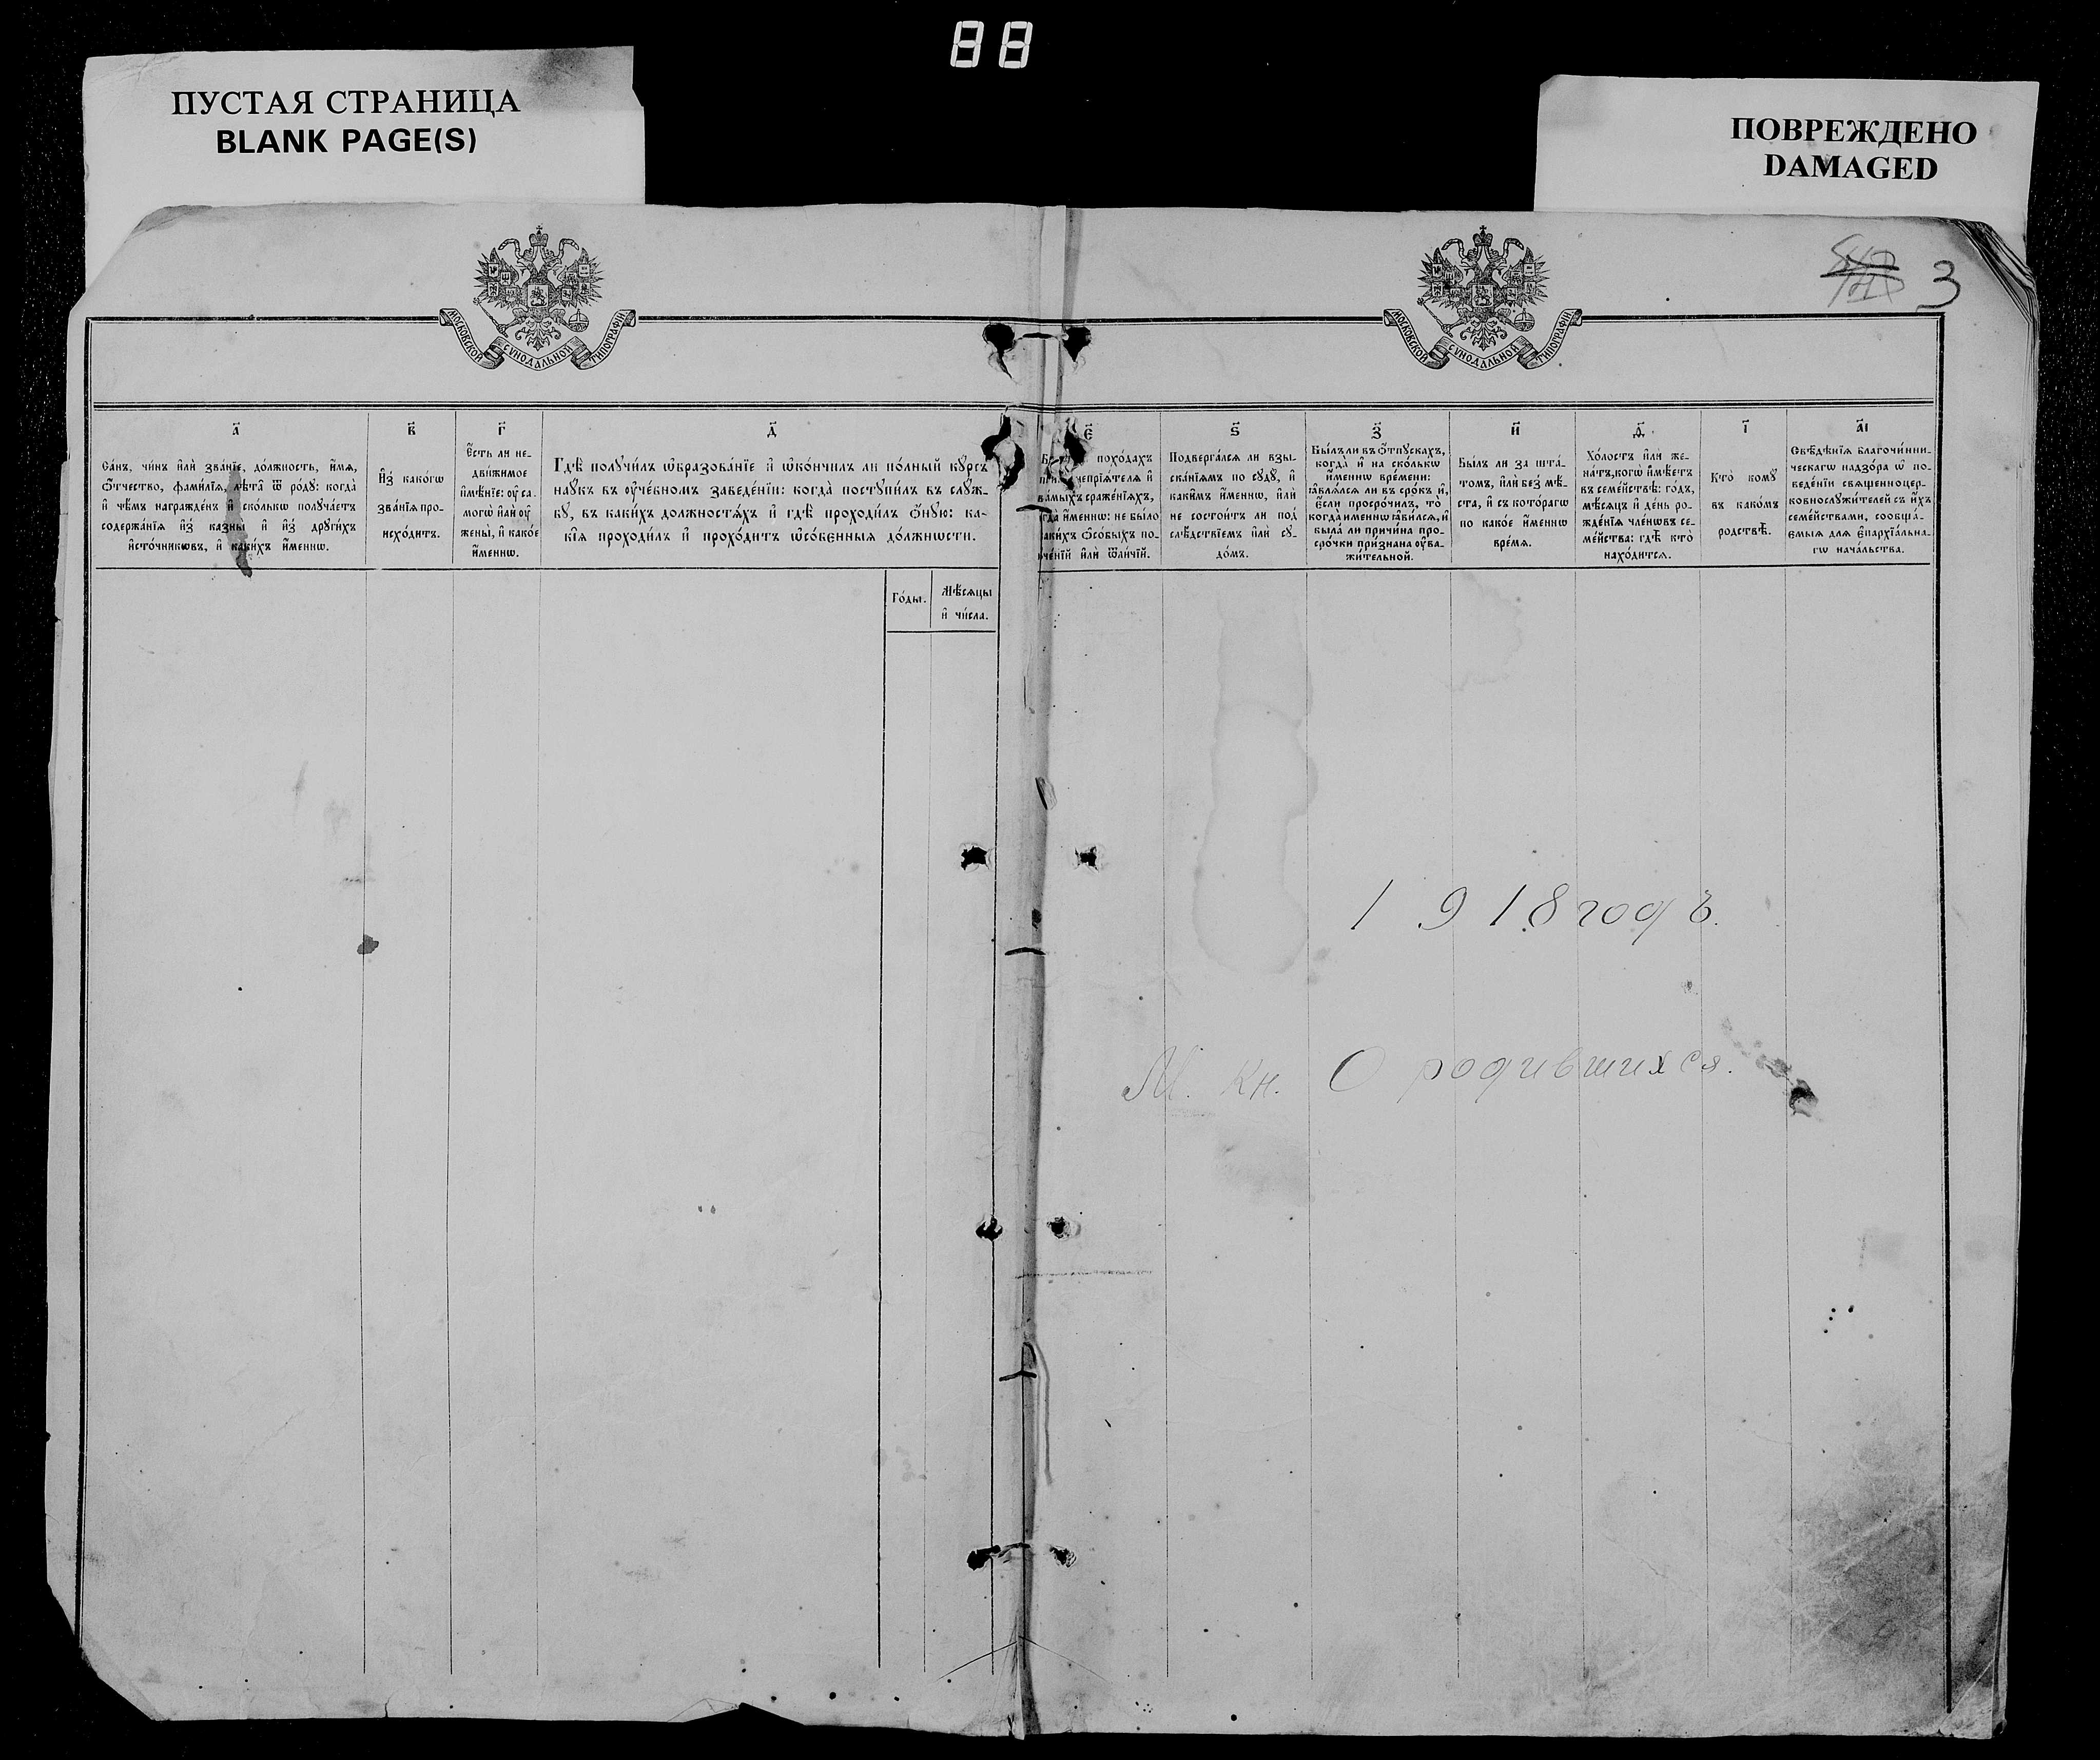 88
ПУСТАЯ СТРАНИЦА
BLANK PAGE(S)
ПОВРЕЖДЕНО
DAMAGED
3
МОСКОВСКОЙ СѴНОДАЛЬНОЙ ТИПОГРАФІИ
МОСКОВСКОЙ СѴНОДАЛЬНОЙ ТИПОГРАФІИ
а҃
Са́нъ, чи́нъ и҆лѝ зва́нїе, до́лжность, и҆́мѧ,
ѻ҆́тчество, фами́лїѧ, лѣ́та ѿ ро́дꙋ: когда̀
и҆ чѣ́мъ награжде́нъ и҆ ско́лькѡ полꙋча́етъ
содержа́нїѧ и҆з̾ казны̀ и҆ и҆з̾ дрꙋги́хъ
и҆сто́чникѡвъ, и҆ каки́хъ и҆́меннѡ.
в҃
И҆з̾ како́гѡ
зва́нїѧ про-
исхо́дитъ.
г҃
Є҆́сть ли не-
дви́жимое
и҆мѣ́нїе: оу҆ са-
могѡ̀ и҆лѝ оу҆
жены̀, и҆ како́е
и҆́меннѡ.
д҃
Гдѣ̀ полꙋчи́лъ ѡ҆бразова́нїе и҆ ѡ҆ко́нчилъ ли по́лный кꙋ́рсъ
наꙋ́къ въ оу҆че́бномъ заведе́нїи: когда̀ постꙋпи́лъ въ слꙋ́ж-
бꙋ, въ каки́хъ должностѧ́хъ и҆ гдѣ̀ проходи́лъ ѻ҆́нꙋю: ка-
кі́ѧ проходи́лъ и҆ прохо́дитъ ѡ҆со́бенныѧ до́лжнѡсти.
Го́ды.
Мѣ́сѧцы
и҆ чи́сла.
є҃
похо́дахъ
непрїѧ́телѧ и҆
сраже́нїѧхъ,
и҆́меннѡ: не бы́ло
ѻ҆со́быхъ по-
и҆лѝ ѿли́чїй.
ѕ҃
Подверга́лсѧ ли взы-
ска́нїѧмъ по сꙋдꙋ̀, и҆
каки́мъ и҆́меннѡ, и҆лѝ
не состои́тъ ли под̾
слѣ́дствїемъ и҆лѝ сꙋ-
до́мъ.
з҃
Бы́лъ ли въ ѻ҆́тпꙋскахъ,
когда̀ и҆ на ско́лькѡ
и҆́меннѡ вре́мени:
ꙗ҆влѧ́лсѧ ли въ сро́къ и҆,
є҆́сли просро́чилъ, то̀
когда̀ и҆́меннѡ ꙗ҆ви́лсѧ, и҆
была̀ ли причи́на про-
сро́чки при́знана оу҆ва-
жи́тельной.
и҃
Бы́лъ ли за шта́-
томъ, и҆лѝ без̾ мѣ́-
ста, и҆ съ кото́рагѡ
по како́е и҆́меннѡ
вре́мѧ.
ѳ҃
Хо́лостъ и҆лѝ же-
на́тъ, когѡ̀ и҆мѣ́етъ
въ семе́йствѣ: го́дъ,
мѣ́сѧцъ и҆ де́нь ро-
жде́нїѧ чле́нѡвъ се-
ме́йства: гдѣ̀ кто̀
нахо́дитсѧ.
і҃
Кто̀ комꙋ̀
въ како́мъ
родствѣ̀.
а҃і
Свѣ́дѣнїѧ благочи́нни-
ческагѡ надзо́ра ѡ҆ по-
веде́нїи свѧщенноцер-
ковнослꙋжи́телей съ и҆́хъ
семе́йствами, сообща́-
емыѧ для Е҆парх­їа́льна-
гѡ нача́льства.
1918 годъ.
М. кн. О родившихся.